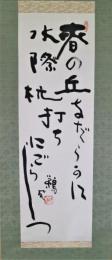 春の丘まだらかに
水際杭打ち
にごらしつ